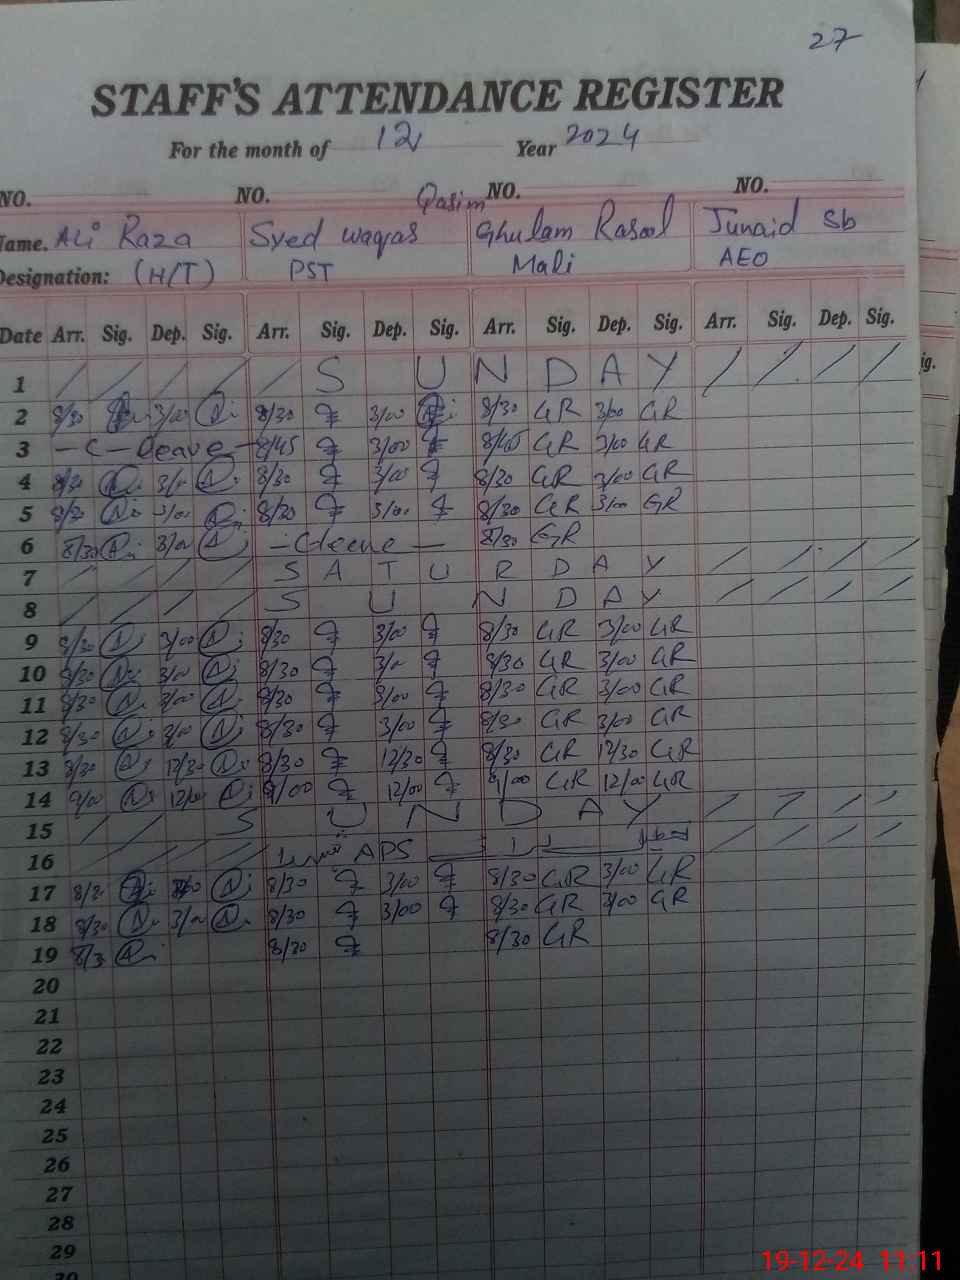 27
STAFF'S ATTENDANCE REGISTER
For the month of 12 Year 2024
NO. NO. NO. NO.
Qasim
Name. Ali Raza Syed waqas Ghulam Rasool Junaid Sb
Designation: (H/T) PST Mali AEO
Date Arr. Sig. Dep. Sig. Arr. Sig. Dep. Sig. Arr. Sig. Dep. Sig. Arr. Sig. Dep. Sig.
1 / / / / / S U N D A Y / / / /
2 8/30 3/00 8/30 3/00 8/30 GR 3/00 GR
3 - C - Leave - 8/45 3/00 8/45 GR 3/00 GR
4 8/30 3/00 8/30 3/00 8/30 GR 3/00 GR
5 8/30 3/00 8/30 3/00 8/30 GR 3/00 GR
6 8/30 3/00 - C leave - 8/30 GR
7 / / / / S A T U R D A Y / / / /
8 / / / / S U N D A Y / / / /
9 8/30 3/00 8/30 3/00 8/30 GR 3/00 GR
10 8/30 3/00 8/30 3/00 8/30 GR 3/00 GR
11 8/30 3/00 8/30 3/00 8/30 GR 3/00 GR
12 8/30 3/00 8/30 3/00 8/30 GR 3/00 GR
13 8/30 12/30 8/30 12/30 8/30 GR 12/30 GR
14 9/00 12/00 9/00 12/00 9/00 GR 12/00 GR
15 / / S U N D A Y / / / /
16 / / / / APS / / / /
17 8/30 8/30 3/00 8/30 GR 3/00 GR
18 8/30 3/00 8/30 3/00 8/30 GR 3/00 GR
19 8/30 8/30 8/30 GR
20
21
22
23
24
25
26
27
28
29
30
19-12-24 11:11